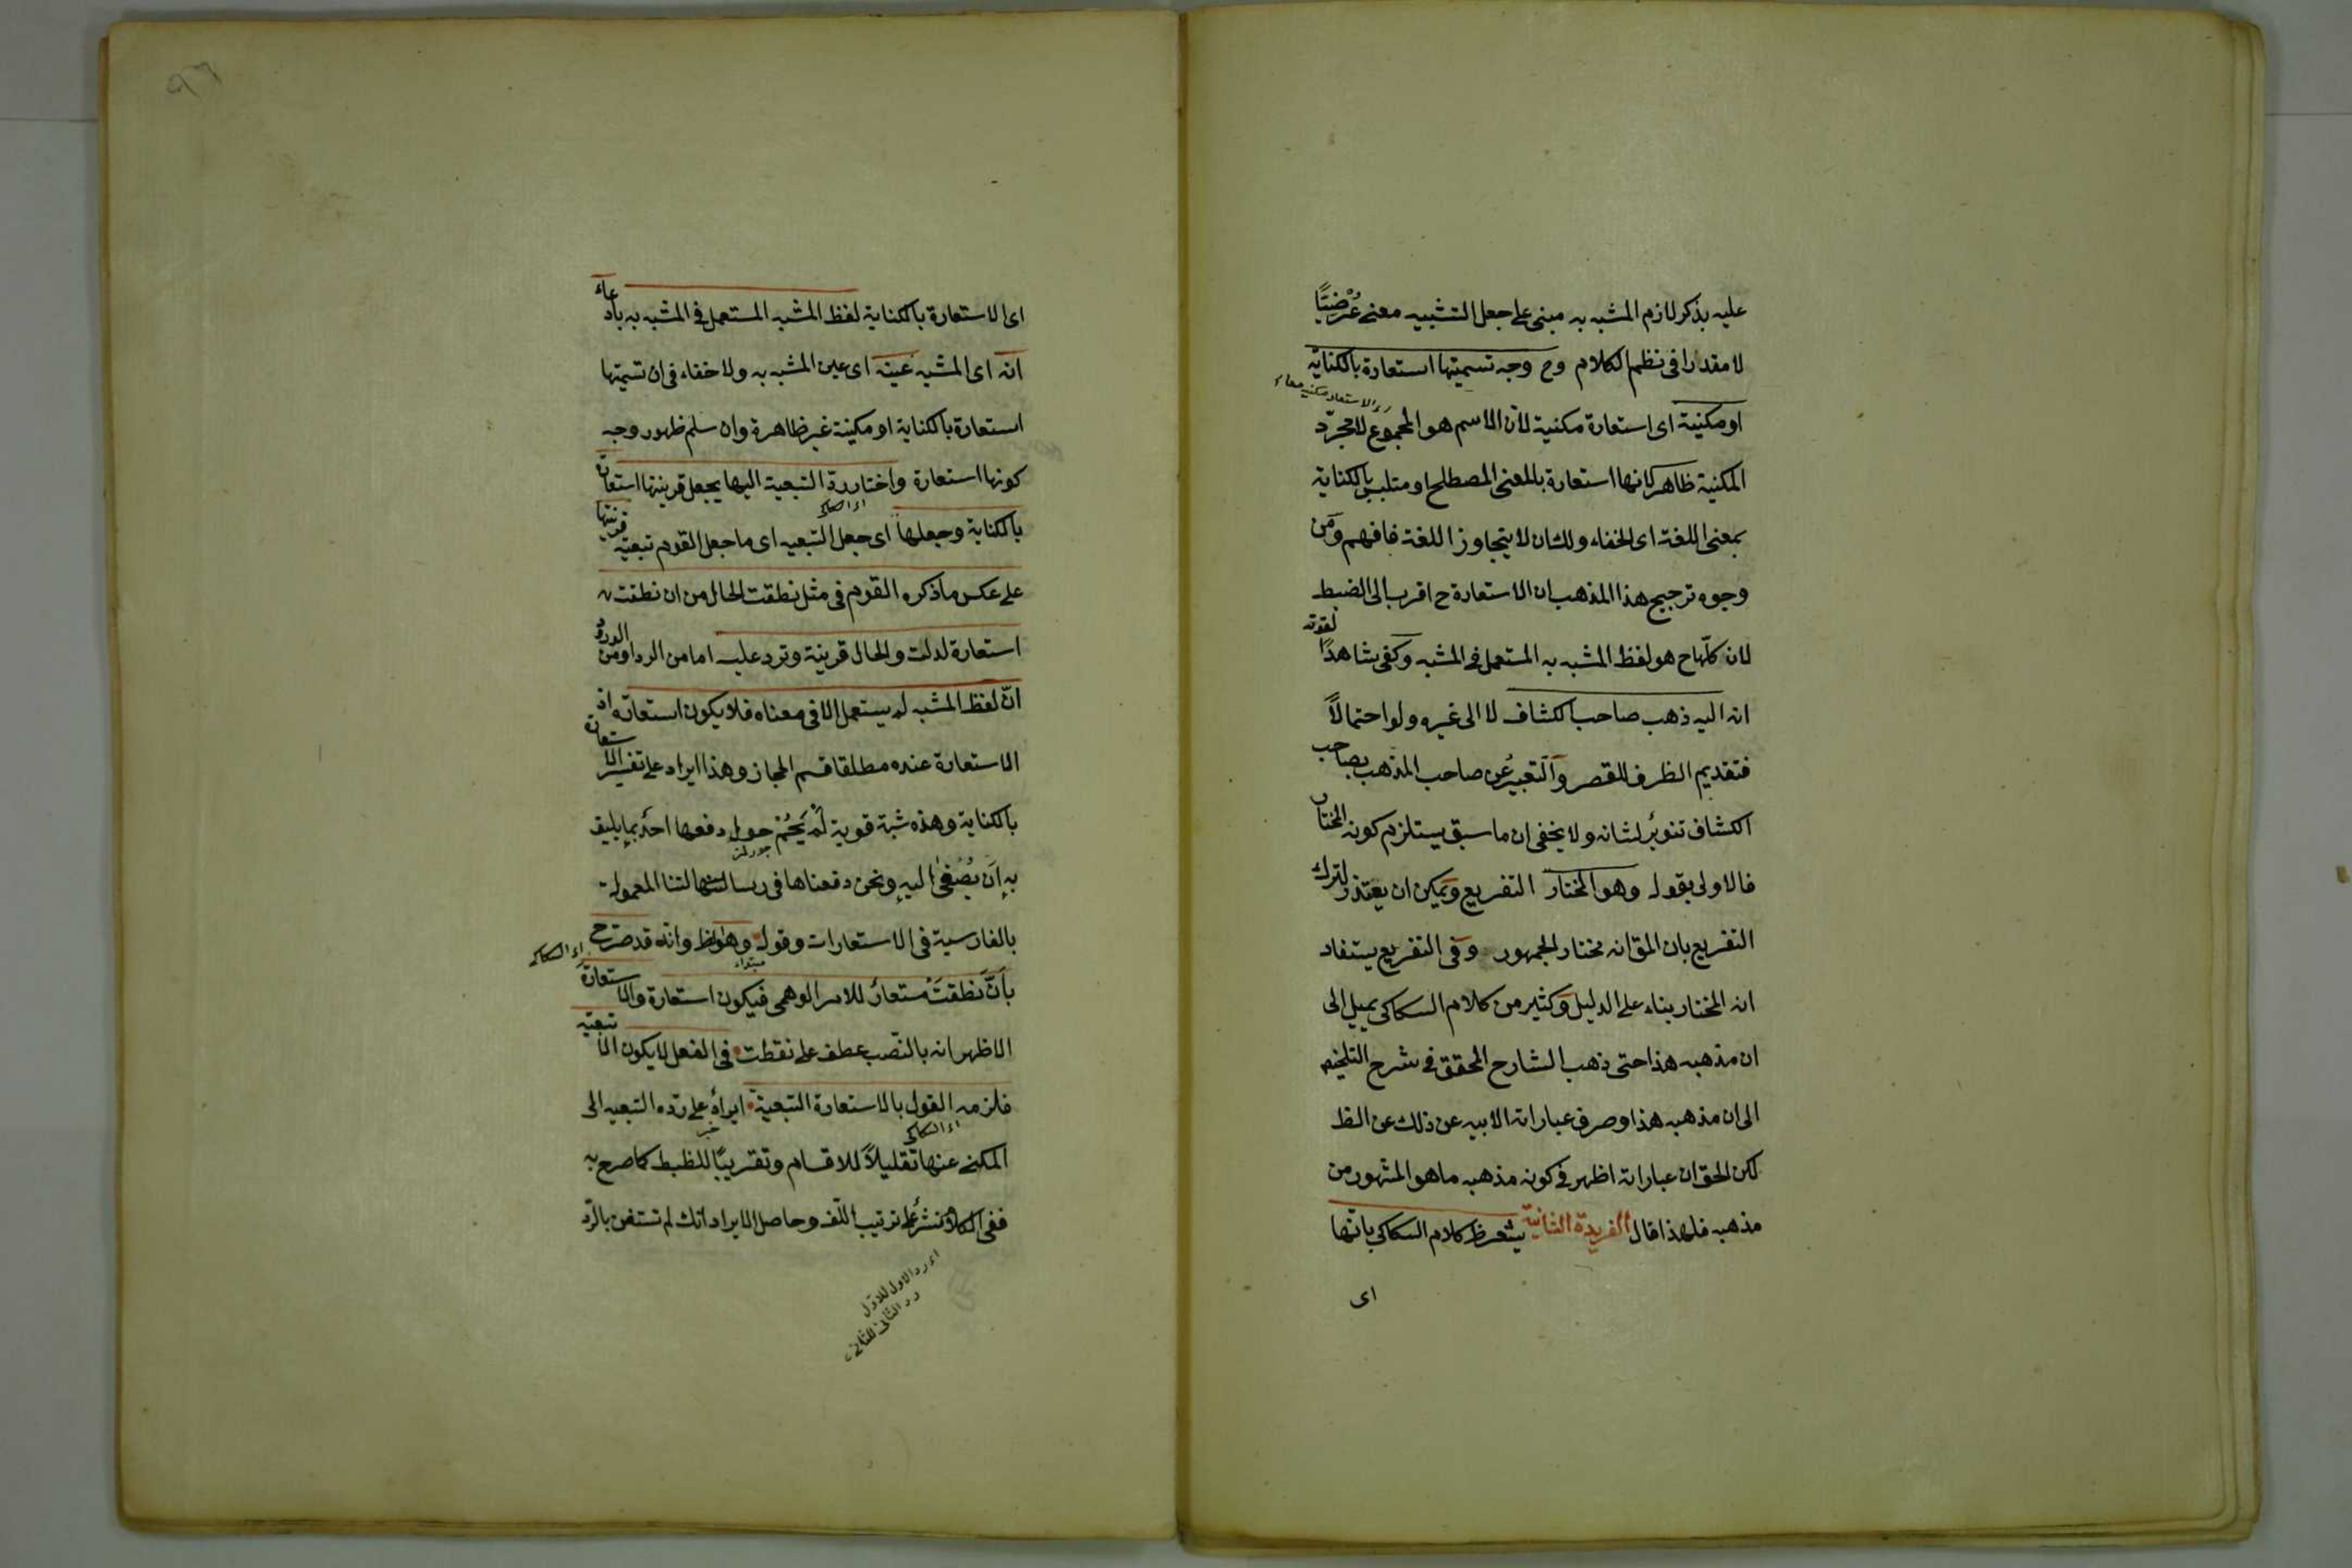 عليه بذكر لازم المشبه به مبنى على جعل التشبيه معنى عُرْضِيًّا
لا مقدرا فى نظم الكلام وح وجه تسميتها استعارة بالكناية
او مكنية اى استعارة مكنية لان الاسم هو المجموع لا مجرّد
المكنية ظاهر لانها استعارة بالمعنى المصطلح او متلبس بالكناية
بمعنى اللغة اى الخفاء ولك ان لا يتجاوز اللغة فافهم ومن
وجوه ترجيح هذا المذهب ان الاستعارة ح اقرب الى الضبط
لان كلّها ح هو لفظ المشبه به المستعمل فى المشبه وكفى شاهدًا لقوته
انه اليه ذهب صاحب الكشاف لا الى غيره ولو احتمالاً
فتقديم الظرف للقصر والتعبير عن صاحب المذهب بصاحب
الكشاف تنويرٌ لشانه ولا يخفى ان ما سبق يستلزم كونه المختار
فالاولى بقوله وهو المختار التفريع ويمكن ان يعتذر لترك
التفريع بان المق انه مختار الجمهور وفى التفريع يستفاد
انه المختار بناء على الدليل وكثير من كلام السكاكى يميل الى
ان مذهبه هذا حتى ذهب الشارح المحقق فى شرح التلخيص
الى ان مذهبه هذا وصرف عباراته الابيه عن ذلك عن الظ
لكن الحق ان عباراته اظهر فى كونه مذهبه ما هو المشهور من
مذهبه فلهذا قال الفريدة الثانية يشعر ظ كلام السكاكى بانها
اى
اى الاستعارة بالكناية لفظ المشبه المستعمل فى المشبه به بادعاء
انه اى المشبه عينه اى عين المشبه به ولا خفاء فى ان تسميتها
استعارة بالكناية او مكينة غير ظاهرة وان سلم ظهور وجه
كونها استعارة واختار ردة التبعية اليها بجعل قرينتها استعارة
بالكناية وجعلها اى جعل التبعيه اى ما جعل القوم تبعيّه قرينتها
على عكس ما ذكره القوم فى مثل نطقت الحال من ان نطقت
استعارة لدلت والحال قرينة وترد عليه اما من الرد او من الورود
انّ لفظ المشبه لم يستعمل الا فى معناه فلا يكون استعارة اذ
الاستعارة عنده مطلقا قسم المجاز وهذا ايراد على تفسير الاستعارة
بالكناية وهذه شبة قوية لَمْ يَحُمْ حول دفعها احدٌ بما يليق
به ان يُصْغى اليه ونحن دفعناها فى رسالتنا المعمولة
بالفارسية فى الاستعارات وقوله وهو ظ وانه قد صرّح
بأنّ نطقتْ مستعارٌ للامر الوهمى فيكون استعارة والاستعارة
الاظهر انه بالنصب عطف على نقطت فى الفعل لا يكون الا تبعيّه
فلزمه القول بالاستعارة التبعية ايرادٌ على ردّه التبعيه الى
المكنى عنها تقليلاً للاقسام وتقريبًا للظبط كما صرح به
ففى الكلام نشرٌ على ترتيب اللف وحاصل الايراد انك لم تستغن بالرّد
اى رد الاول للاوّل
رد الثانى للثانى